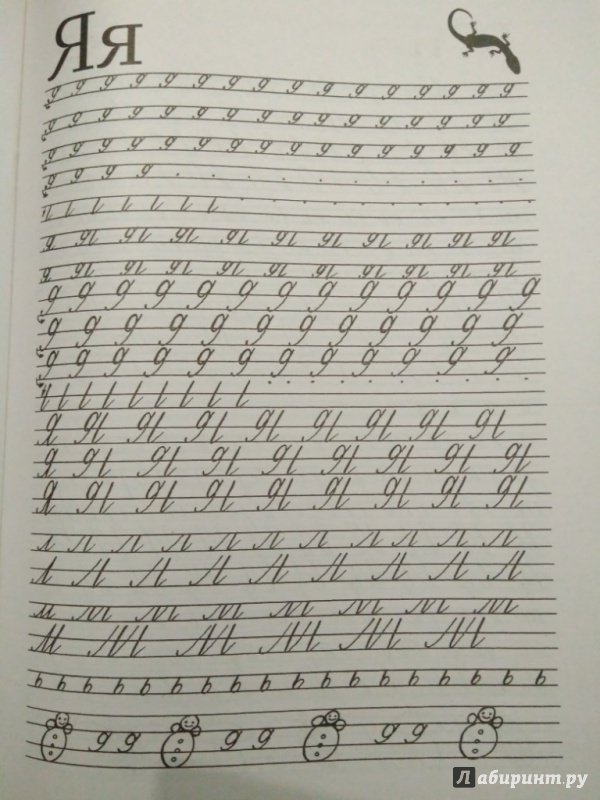 Яя
я я я я я я я я я я я
я я я я я я я я я я я
Я Я Я Я Я Я Я Я Я
Я Я Я Я Я Я Я Я Я
Я Я Я Я Я Я Я Я Я
л л л л л л л л л л л
Л Л Л Л Л Л Л Л Л
м м м м м м м м
М М М М М М
ь ь ь ь ь ь ь ь ь ь ь ь ь ь ь ь ь ь ь
Лабиринт.ру